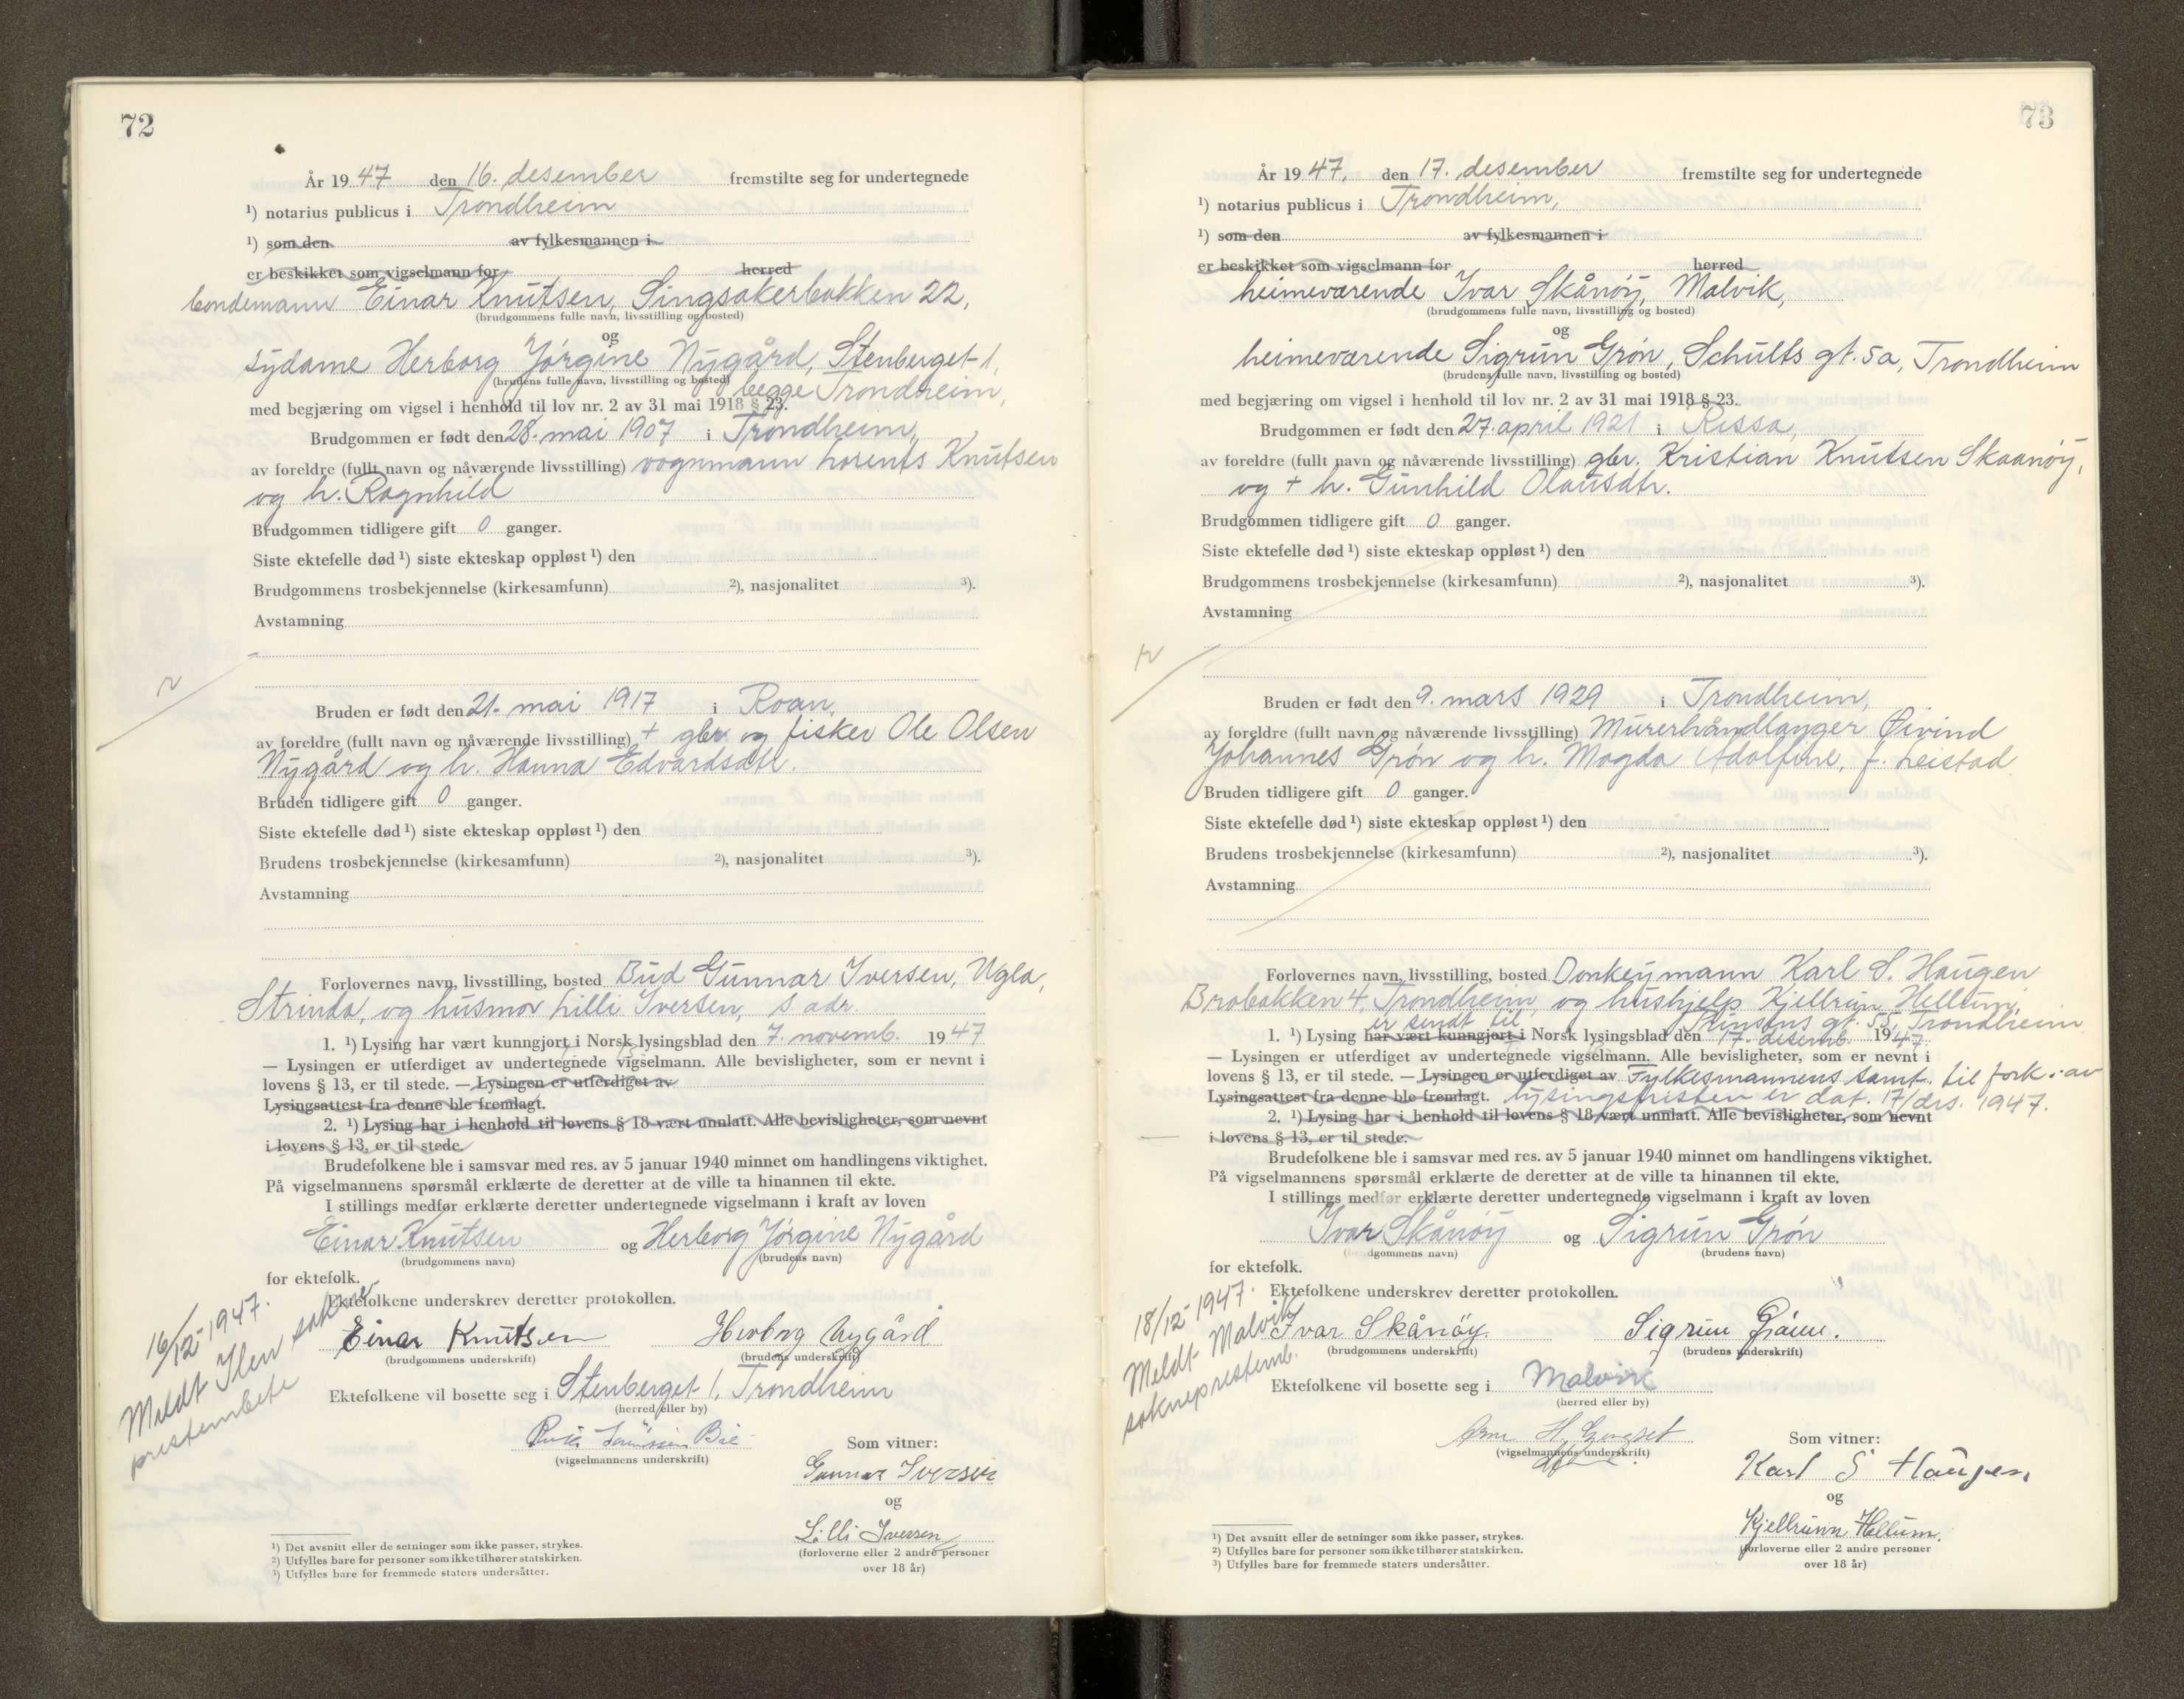 72
År 1947 den 16. desember fremstilte seg for undertegnede
¹) notarius publicus i Trondheim
¹) som den av fylkesmannen i
er beskikket som vigselmann for herred
bondemann Einar Knutsen, Singsakerbakken 22,
(brudgommens fulle navn, livsstilling og bosted)
og
sydame Herborg Jørgine Nygård, Stenberget 1,
(brudens fulle navn, livsstilling og bosted) begge Trondheim,
med begjæring om vigsel i henhold til lov nr. 2 av 31 mai 1918 § 23.
Brudgommen er født den 28. mai 1907 i Trondheim,
av foreldre (fullt navn og nåværende livsstilling) vognmann Lorents Knutsen
og h. Ragnhild
Brudgommen tidligere gift 0 ganger.
Siste ektefelle død ¹) siste ekteskap oppløst ¹) den
Brudgommens trosbekjennelse (kirkesamfunn) ²), nasjonalitet ³).
Avstamning
Bruden er født den 21. mai 1917 i Roan,
av foreldre (fullt navn og nåværende livsstilling) + gbr. og fisker Ole Olsen
Nygård og h. Hanna Edvardsdtr.
Bruden tidligere gift 0 ganger.
Siste ektefelle død ¹) siste ekteskap oppløst ¹) den
Brudens trosbekjennelse (kirkesamfunn) ²), nasjonalitet ³).
Avstamning
Forlovernes navn, livsstilling, bosted Bud Gunnar Iversen, Ugla,
Strinda, og husmor Lilli Iversen, s. adr.
1. ¹) Lysing har vært kunngjort i Norsk lysingsblad den 7. novemb. 1947
— Lysingen er utferdiget av undertegnede vigselmann. Alle bevisligheter, som er nevnt i
lovens § 13, er til stede. — Lysingen er utferdiget av
Lysingsattest fra denne ble fremlagt.
2. ¹) Lysing har i henhold til lovens § 18 vært unnlatt. Alle bevisligheter, som nevnt
i lovens § 13, er til stede.
Brudefolkene ble i samsvar med res. av 5 januar 1940 minnet om handlingens viktighet.
På vigselmannens spørsmål erklærte de deretter at de ville ta hinannen til ekte.
I stillings medfør erklærte deretter undertegnede vigselmann i kraft av loven
Einar Knutsen og Herborg Jørgine Nygård
(brudgommens navn) (brudens navn)
for ektefolk.
Ektefolkene underskrev deretter protokollen.
Einar Knutsen Herborg Nygård
(brudgommens underskrift) (brudens underskrift)
16/12-1947.
Meldt Ilen sokne-
prestembete
Ektefolkene vil bosette seg i Stenberget 1, Trondheim
(herred eller by)
(vigselmannens underskrift)
Som vitner:
Gunnar Iversen
og
Lilli Iversen
(forloverne eller 2 andre personer
over 18 år)
¹) Det avsnitt eller de setninger som ikke passer, strykes.
²) Utfylles bare for personer som ikke tilhører statskirken.
³) Utfylles bare for fremmede staters undersåtter.
73
År 1947, den 17. desember fremstilte seg for undertegnede
¹) notarius publicus i Trondheim,
¹) som den av fylkesmannen i
er beskikket som vigselmann for herred
heimeværende Ivar Skånøy, Malvik,
(brudgommens fulle navn, livsstilling og bosted)
og
heimeværende Sigrun Grøn, Schults gt. 5a, Trondheim
(brudens fulle navn, livsstilling og bosted)
med begjæring om vigsel i henhold til lov nr. 2 av 31 mai 1918 § 23.
Brudgommen er født den 27. april 1921 i Rissa,
av foreldre (fullt navn og nåværende livsstilling) gbr. Kristian Knutsen Skaanøy,
og + h. Gunhild Olausdtr.
Brudgommen tidligere gift 0 ganger.
Siste ektefelle død ¹) siste ekteskap oppløst ¹) den
Brudgommens trosbekjennelse (kirkesamfunn) ²), nasjonalitet ³).
Avstamning
Bruden er født den 9. mars 1929 i Trondheim,
av foreldre (fullt navn og nåværende livsstilling) Murerhåndlanger Øivind
Johannes Grøn og h. Magda Adolfine, f. Leistad
Bruden tidligere gift 0 ganger.
Siste ektefelle død ¹) siste ekteskap oppløst ¹) den
Brudens trosbekjennelse (kirkesamfunn) ²), nasjonalitet ³).
Avstamning
Forlovernes navn, livsstilling, bosted Donkeymann Karl S. Haugen
Brobakken 4, Trondheim, og hushjelp Kjellrun Hellum,
er sendt til gt. 55, Trondheim
1. ¹) Lysing har vært kunngjort i Norsk lysingsblad den 17. desemb. 1947.
— Lysingen er utferdiget av undertegnede vigselmann. Alle bevisligheter, som er nevnt i
lovens § 13, er til stede. — Lysingen er utferdiget av Fylkesmannens samt. til fork. av
Lysingsattest fra denne ble fremlagt. lysingsfristen er dat. 17/ds. 1947.
2. ¹) Lysing har i henhold til lovens § 18 vært unnlatt. Alle bevisligheter, som nevnt
i lovens § 13, er til stede.
Brudefolkene ble i samsvar med res. av 5 januar 1940 minnet om handlingens viktighet.
På vigselmannens spørsmål erklærte de deretter at de ville ta hinannen til ekte.
I stillings medfør erklærte deretter undertegnede vigselmann i kraft av loven
Ivar Skånøy og Sigrun Grøn
(brudgommens navn) (brudens navn)
for ektefolk.
Ektefolkene underskrev deretter protokollen.
Ivar Skånøy. Sigrun Grønn.
(brudgommens underskrift) (brudens underskrift)
18/12-1947.
Meldt Malvik
sokneprestemb.
Ektefolkene vil bosette seg i Malvik
(herred eller by)
(vigselmannens underskrift)
Som vitner:
Karl S Haugen,
og
Kjellrunn Hellum.
(forloverne eller 2 andre personer
over 18 år)
¹) Det avsnitt eller de setninger som ikke passer, strykes.
²) Utfylles bare for personer som ikke tilhører statskirken.
³) Utfylles bare for fremmede staters undersåtter.